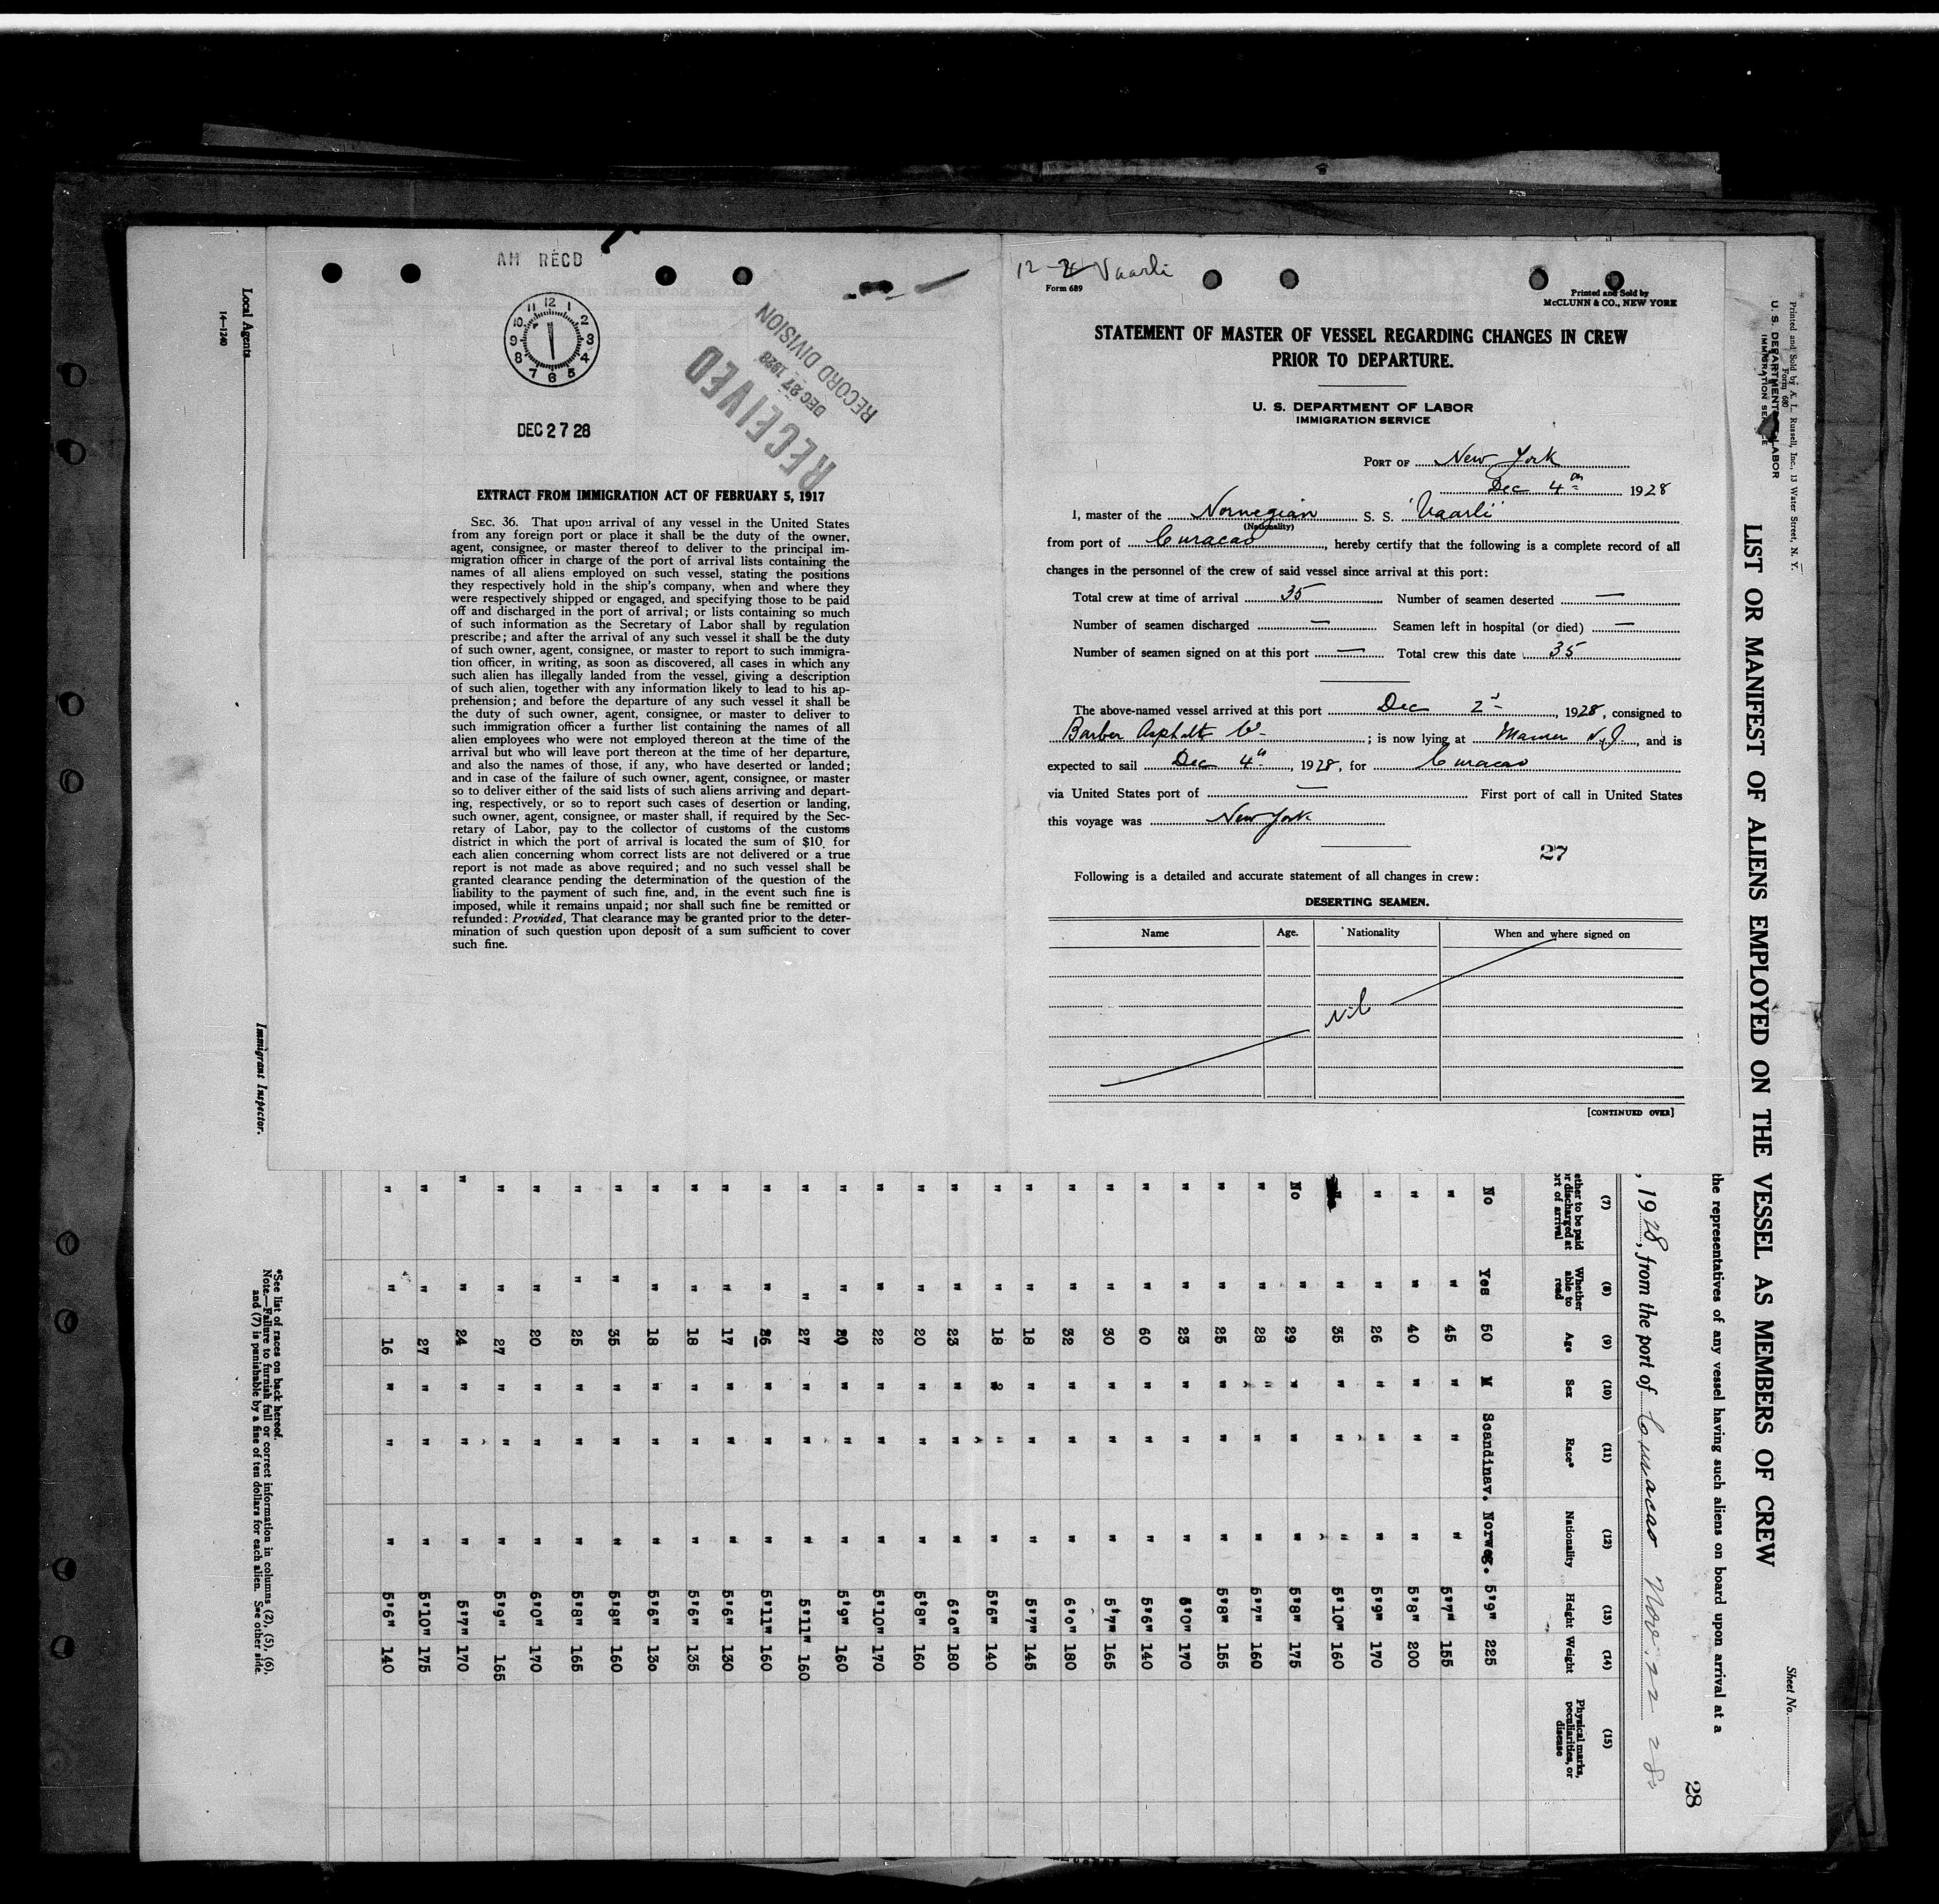 AM RECD
12 1 2 3 4 5 6 7 8 9 10 11
DEC 27 28
RECEIVED
DEC 27 1928
RECORD DIVISION
EXTRACT FROM IMMIGRATION ACT OF FEBRUARY 5, 1917
SEC. 36. That upon arrival of any vessel in the United States
from any foreign port or place it shall be the duty of the owner,
agent, consignee, or master thereof to deliver to the principal im-
migration officer in charge of the port of arrival lists containing the
names of all aliens employed on such vessel, stating the positions
they respectively hold in the ship's company, when and where they
were respectively shipped or engaged, and specifying those to be paid
off and discharged in the port of arrival; or lists containing so much
of such information as the Secretary of Labor shall by regulation
prescribe; and after the arrival of any such vessel it shall be the duty
of such owner, agent, consignee, or master to report to such immigra-
tion officer, in writing, as soon as discovered, all cases in which any
such alien has illegally landed from the vessel, giving a description
of such alien, together with any information likely to lead to his ap-
prehension; and before the departure of any such vessel it shall be
the duty of such owner, agent, consignee, or master to deliver to
such immigration officer a further list containing the names of all
alien employees who were not employed thereon at the time of the
arrival but who will leave port thereon at the time of her departure,
and also the names of those, if any, who have deserted or landed;
and in case of the failure of such owner, agent, consignee, or master
so to deliver either of the said lists of such aliens arriving and depart-
ing, respectively, or so to report such cases of desertion or landing,
such owner, agent, consignee, or master shall, if required by the Sec-
retary of Labor, pay to the collector of customs of the customs
district in which the port of arrival is located the sum of $10 for
each alien concerning whom correct lists are not delivered or a true
report is not made as above required; and no such vessel shall be
granted clearance pending the determination of the question of the
liability to the payment of such fine, and, in the event such fine is
imposed, while it remains unpaid; nor shall such fine be remitted or
refunded: Provided, That clearance may be granted prior to the deter-
mination of such question upon deposit of a sum sufficient to cover
such fine.
12-2 Vaarli
Form 689
Printed and Sold by
McCLUNN & CO., NEW YORK
STATEMENT OF MASTER OF VESSEL REGARDING CHANGES IN CREW
PRIOR TO DEPARTURE.
U. S. DEPARTMENT OF LABOR
IMMIGRATION SERVICE
PORT OF New York
Dec 4th 1928
I, master of the Norwegian S. S. "Vaarli"
(Nationality)
from port of Curacao, hereby certify that the following is a complete record of all
changes in the personnel of the crew of said vessel since arrival at this port:
Total crew at time of arrival 35 Number of seamen deserted —
Number of seamen discharged — Seamen left in hospital (or died) —
Number of seamen signed on at this port — Total crew this date 35
The above-named vessel arrived at this port Dec 2d, 1928, consigned to
Barber Asphalt Co; is now lying at Maurer N.J., and is
expected to sail Dec 4th, 1928, for Curacao
via United States port of — First port of call in United States
this voyage was New York
27
Following is a detailed and accurate statement of all changes in crew:
DESERTING SEAMEN.
Name Age. Nationality When and where signed on
Nil
[CONTINUED OVER]
Printed and Sold by A. L. Russell, Inc., 13 Water Street, N. Y.
Form 680
U. S. DEPARTMENT OF LABOR
IMMIGRATION SERVICE
Sheet No.
LIST OR MANIFEST OF ALIENS EMPLOYED ON THE VESSEL AS MEMBERS OF CREW
the representatives of any vessel having such aliens on board upon arrival at a
28
, 1928, from the port of Curacao Nov. 22 28
(7) (8) (9) (10) (11) (12) (13) (14) (15)
ether to be paid
r discharged at
rt of arrival
Whether
able to
read
Age
Sex
Race*
Nationality
Height
Weight
Physical marks,
peculiarities, or
disease
No Yes 50 M Scandinav. Norweg. 5'9" 225
" " 45 " " " 5'7" 155
" " 40 " " " 5'8" 200
" " 26 " " " 5'9" 170
" 35 " " " 5'10" 160
No " 29 " " " 5'8" 175
" " 28 " " " 5'7" 160
" " 25 " " " 5'8" 155
" " 23 " " " 6'0" 170
" " 60 " " " 5'6" 140
" " 30 " " " 5'7" 165
" " 32 " " " 6'0" 180
" " 18 " " " 5'7" 145
" " 18 " " " 5'6" 140
" " 23 " " " 6'0" 180
" " 20 " " " 5'8" 160
" " 22 " " " 5'10" 170
" " 20 " " " 5'9" 160
" " 27 " " " 5'11" 160
" " 26 " " " 5'11" 160
" " 17 " " " 5'6" 130
" " 18 " " " 5'6" 135
" " 18 " " " 5'6" 130
" " 35 " " " 5'8" 160
" " 25 " " " 5'8" 165
" " 20 " " " 6'0" 170
" " 27 " " " 5'9" 165
" " 24 " " " 5'7" 170
" " 27 " " " 5'10" 175
" " 16 " " " 5'6" 140
*See list of races on back hereof.
Note.—Failure to furnish full or correct information in columns (2), (5), (6),
and (7) is punishable by a fine of ten dollars for each alien. See other side.
Immigrant Inspector.
Local Agents
14—1240